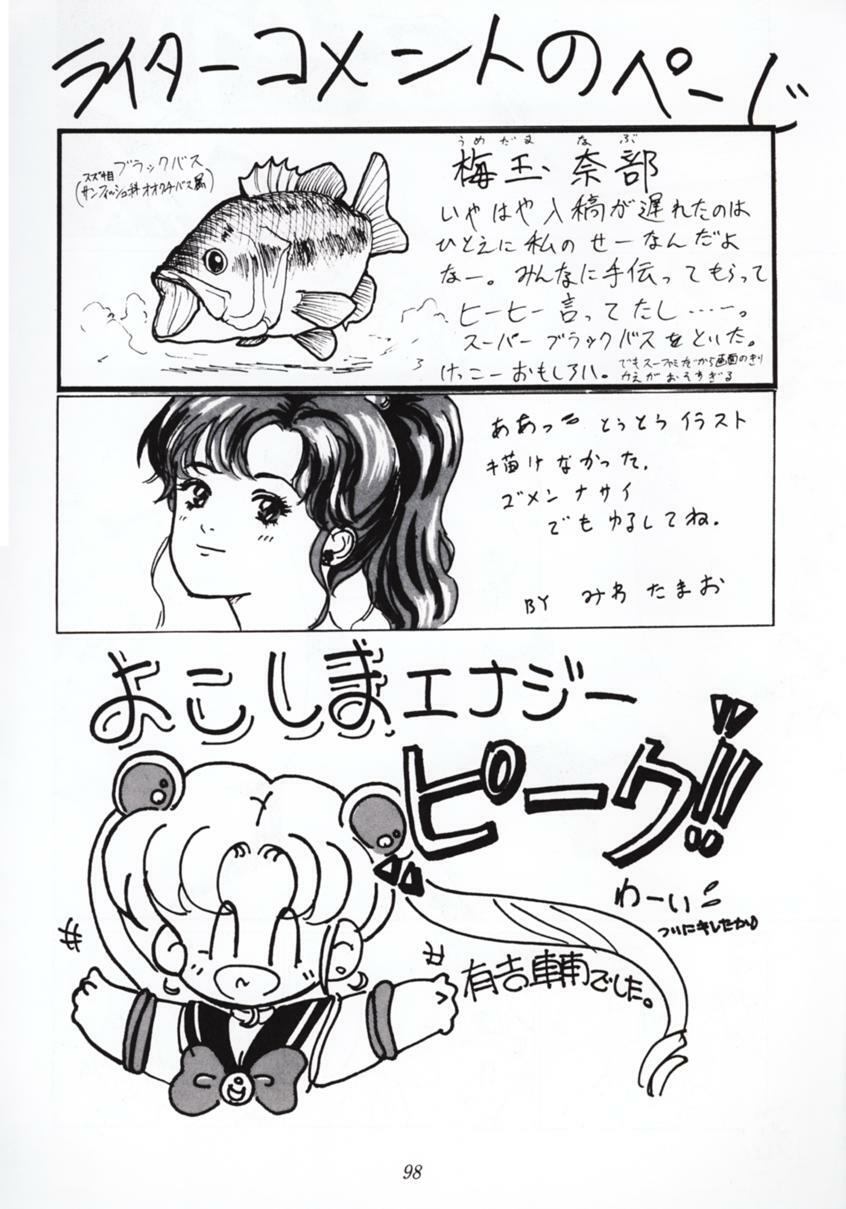 ライターコメントのページ
スズキ目 ブラックバス
(サンフィッシュ科オオクチバス属)
うめだま なぶ
梅玉 奈部
いやはや入稿が遅れたのは
ひとえに私のせーなんだよ
なー。みんなに手伝ってもらって
ヒーヒー言ってたし……。
スーパーブラックバスをといた。
けっこーおもしろい。
でもスーファミだから画面のきり
かえがおそすぎる
ああっ とうとう イラスト
描けなかった。
ゴメンナサイ
でもゆるしてね。
BY みわ たまお
よこしまエナジー
ピーク!!
わーい
ついにキしたか
有吉 でした。
98